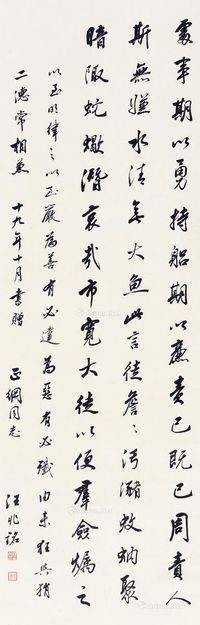 處事期以勇持躬期以廉責己既已周責人
斯無嫌水清無大魚此言徒詹〻污瀦蚊蚋聚
暗陬虵蠍潛哀哉市寬大徒以便羣僉燭之
以至明律之以至嚴為善有必達為惡有必殲由來狂與狷
二德常相兼 十九年十月書贈 正綱同志 汪兆銘